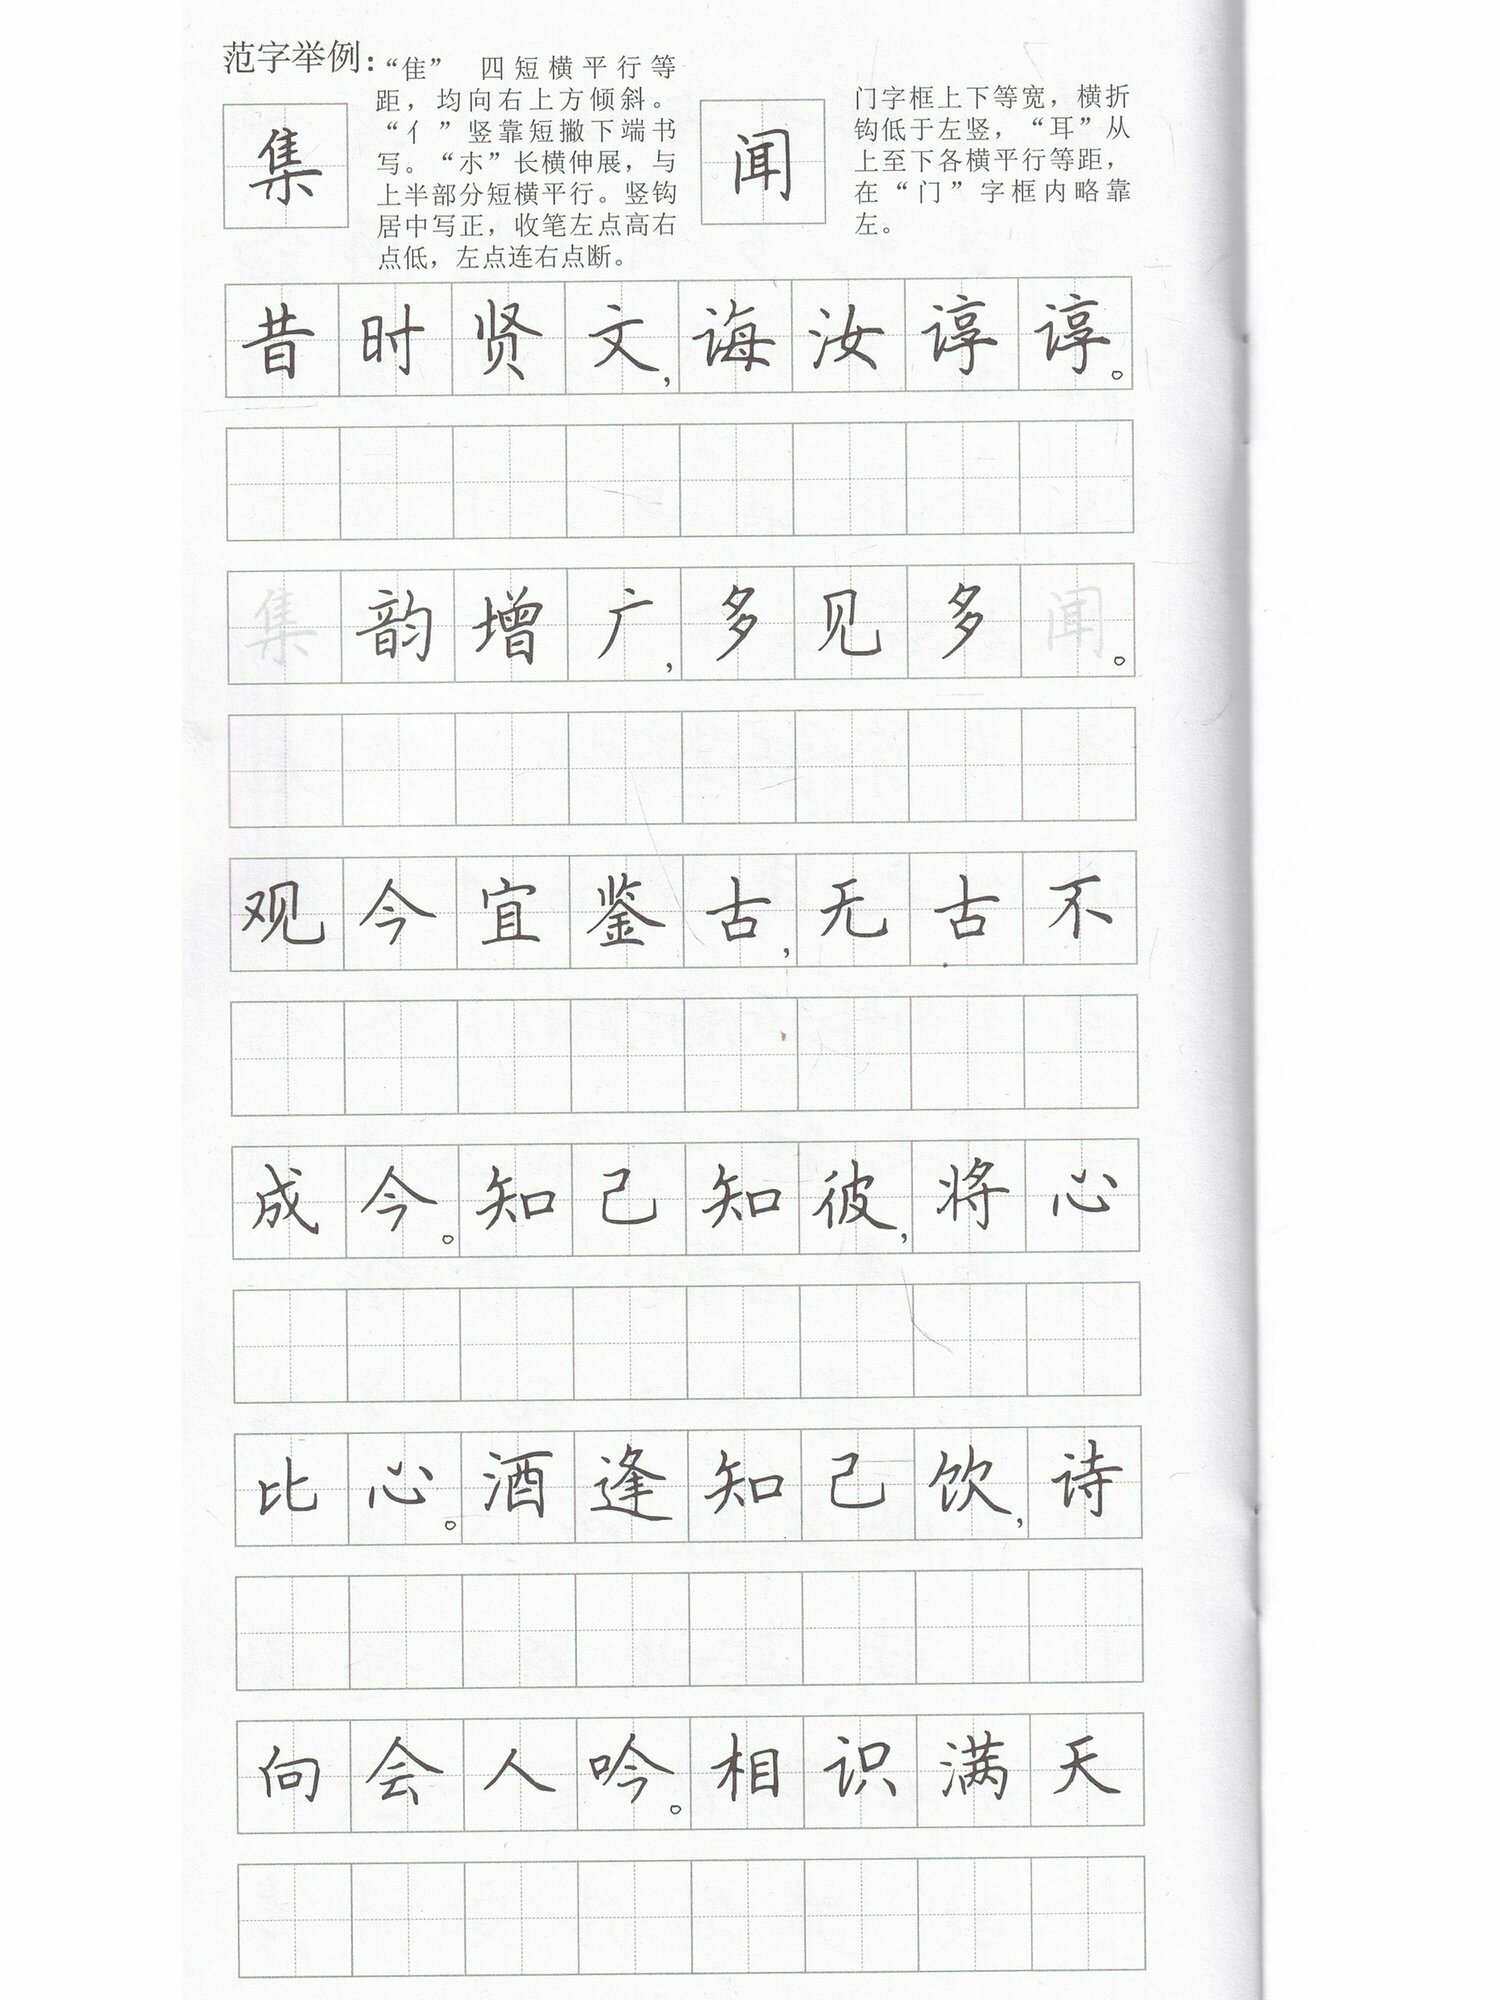 范字举例：
集
“隹” 四短横平行等
距，均向右上方倾斜。
“亻”竖靠短撇下端书
写。“木”长横伸展，与
上半部分短横平行。竖钩
居中写正，收笔左点高右
点低，左点连右点断。
闻
门字框上下等宽，横折
钩低于左竖，“耳”从
上至下各横平行等距，
在“门”字框内略靠
左。
昔时贤文，诲汝谆谆。
集韵增广，多见多闻。
观今宜鉴古，无古不
成今。知己知彼，将心
比心。酒逢知己饮，诗
向会人吟。相识满天